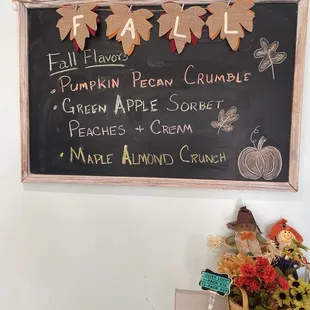 FALL
Fall Flavors
• Pumpkin Pecan Crumble
• Green Apple Sorbet
Peaches + Cream
• Maple Almond Crunch